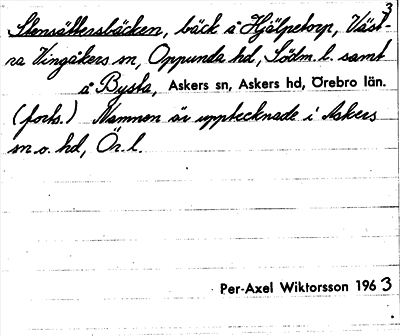 3
Stensättersbäcken, bäck å Hjälpetorp, Väst-
ra Vingåkers sn, Oppunda hd, Södm. l. samt
å Bysta, Askers sn, Askers hd, Örebro län.
(forts.) Namnen är upptecknade i Askers
sn o. hd, Ör. l.
Per-Axel Wiktorsson 1963